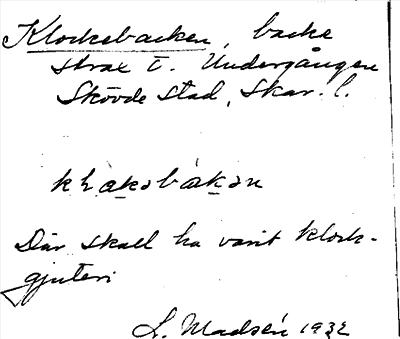 Klockebacken, backe
strax t. Undergången
Skövde stad, Skar. l.
Där skall ha varit klock-
gjuteri
L. Madsén 1932